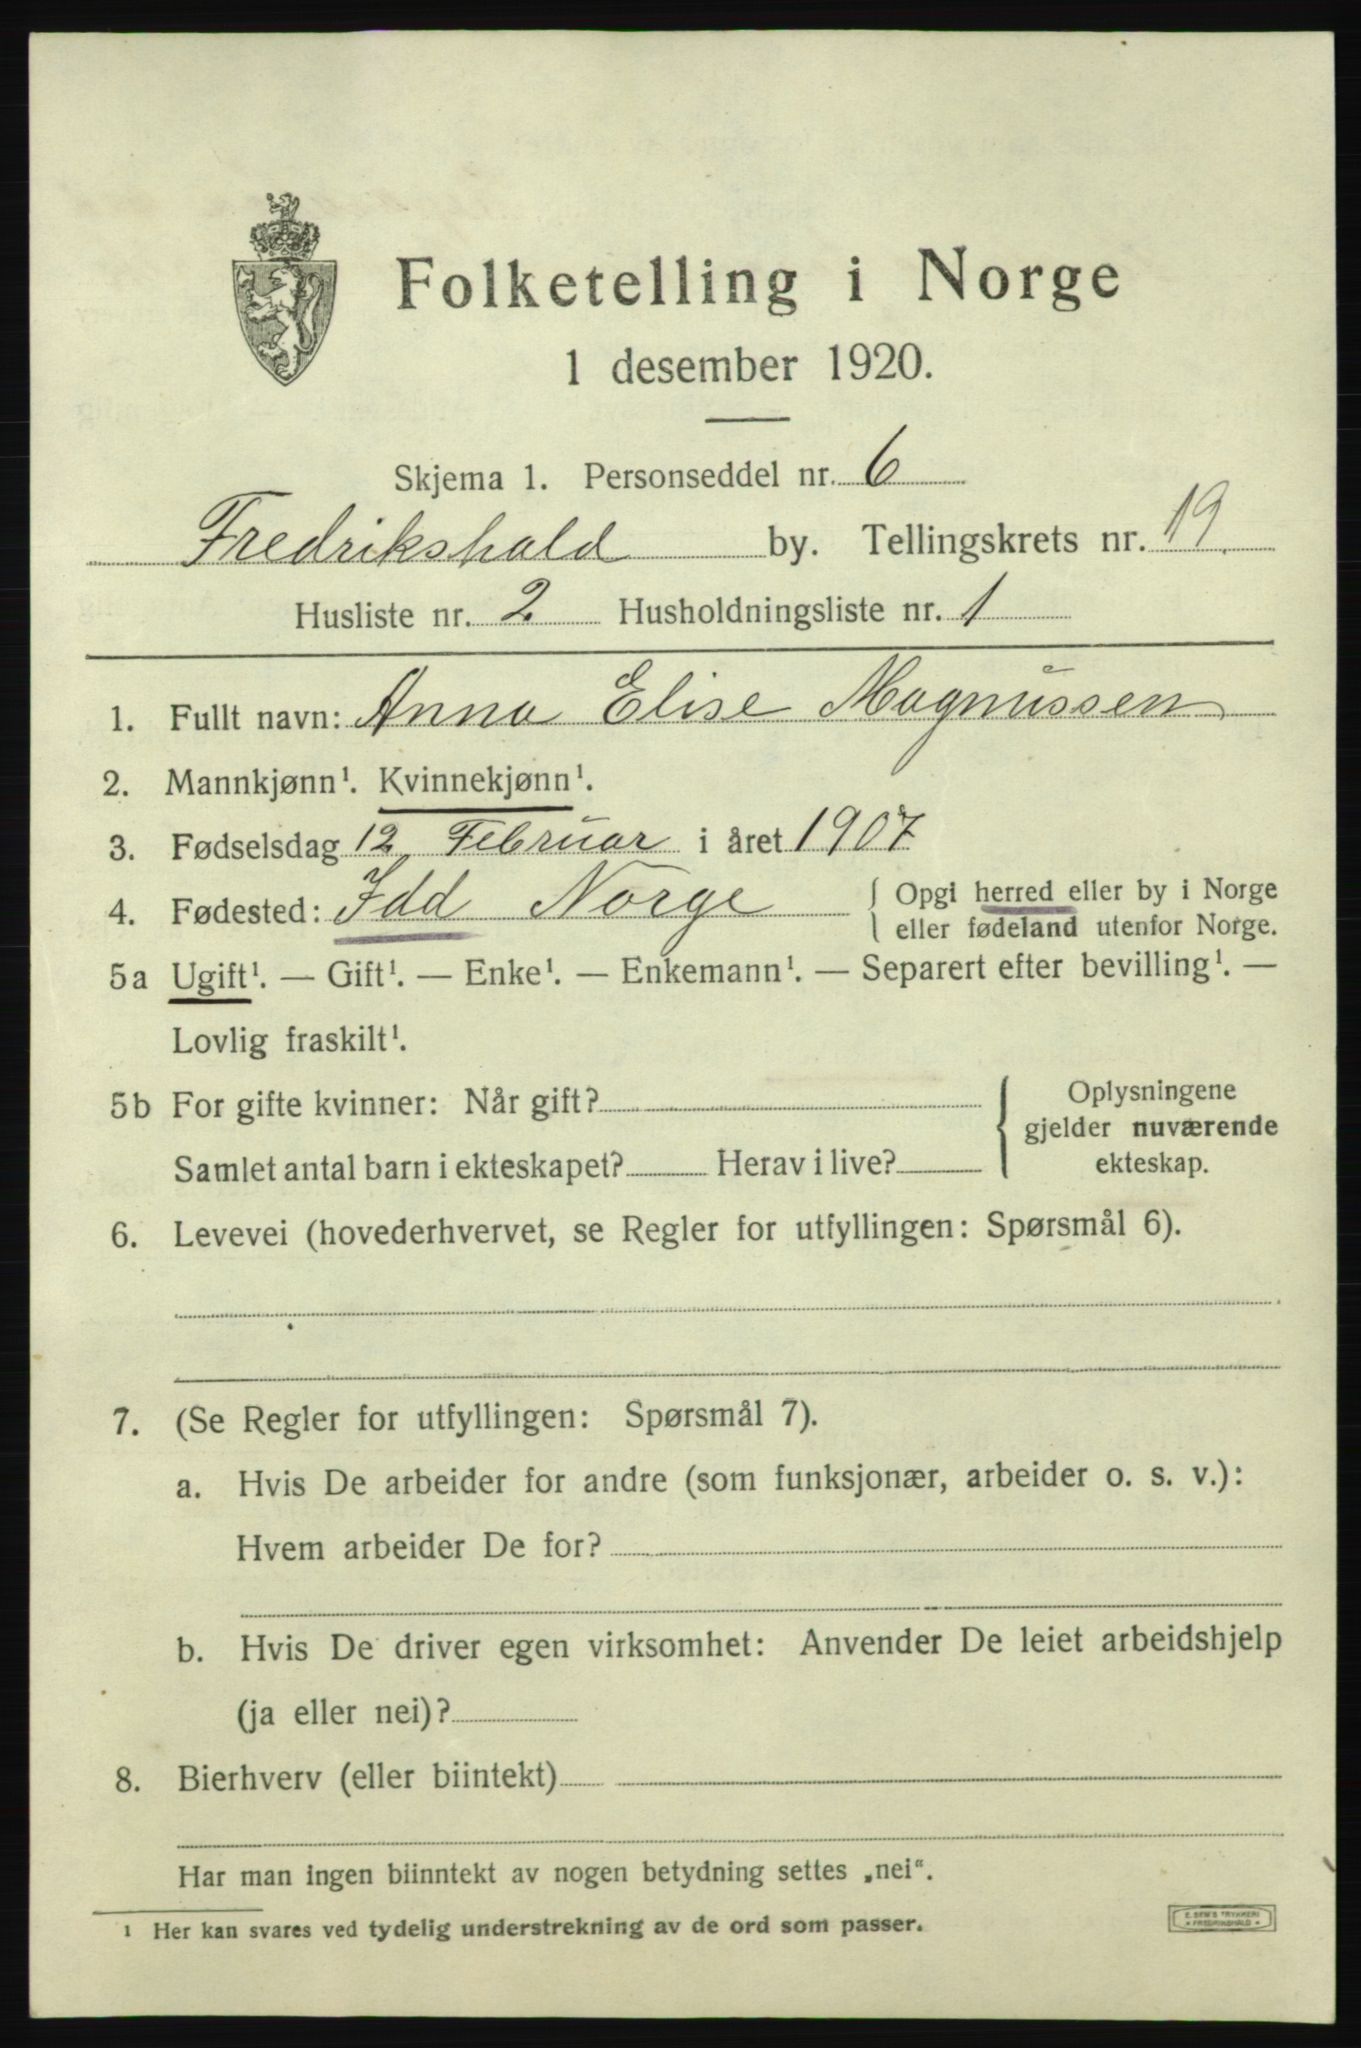 Folketelling i Norge
1 desember 1920.
Skjema 1. Personseddel nr. 6
Fredrikshald by. Tellingskrets nr. 19.
Husliste nr. 2 Husholdningsliste nr. 1
1. Fullt navn: Anna Elise Magnussen
2. Mannkjønn¹. Kvinnekjønn¹.
3. Fødselsdag 12 Februar i året 1907
4. Fødested: Idd Norge { Opgi herred eller by i Norge
eller fødeland utenfor Norge.
5a Ugift¹. — Gift¹. — Enke¹. — Enkemann¹. — Separert efter bevilling¹. —
Lovlig fraskilt¹.
5b For gifte kvinner: Når gift?
Samlet antal barn i ekteskapet? Herav i live?
{ Oplysningene
gjelder nuværende
ekteskap.
6. Levevei (hovederhvervet, se Regler for utfyllingen: Spørsmål 6).
7. (Se Regler for utfyllingen: Spørsmål 7).
a. Hvis De arbeider for andre (som funksjonær, arbeider o. s. v.):
Hvem arbeider De for?
b. Hvis De driver egen virksomhet: Anvender De leiet arbeidshjelp
(ja eller nei)?
8. Bierhverv (eller biintekt)
Har man ingen biinntekt av nogen betydning settes „nei“.
¹ Her kan svares ved tydelig understrekning av de ord som passer.
E. SEM'S TRYKKERI
• FREDRIKSHALD •